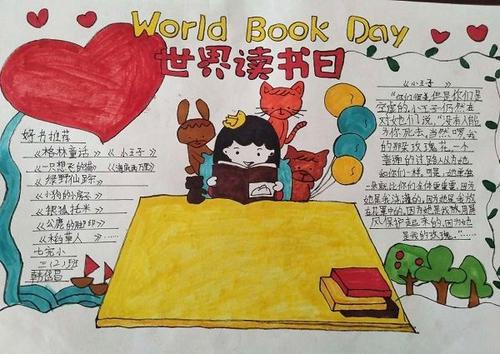 World Book Day
世界读书日
好书推荐
《格林童话》 《小王子》
《一只想飞的猫》《海底两万里》
《绿野仙踪》
《小狗的小房子》
《银狐托米》
《公鹿的脚印》
《稻草人》……
七完小
三(2)班
《小王子》
"你们很美,但是你们是
空虚的,小王子仍然在
对她们说,"没有人能
为你死去,当然喽,我
的那朵玫瑰花,一个
普通的过路人以为她
和你们一样,可是,她单独
一朵就比你们全体更重要,因为
她是我浇灌的,因为她是我放
在花罩中的,因为她是我用屏
风保护起来的,因为她
是我的玫瑰。"……